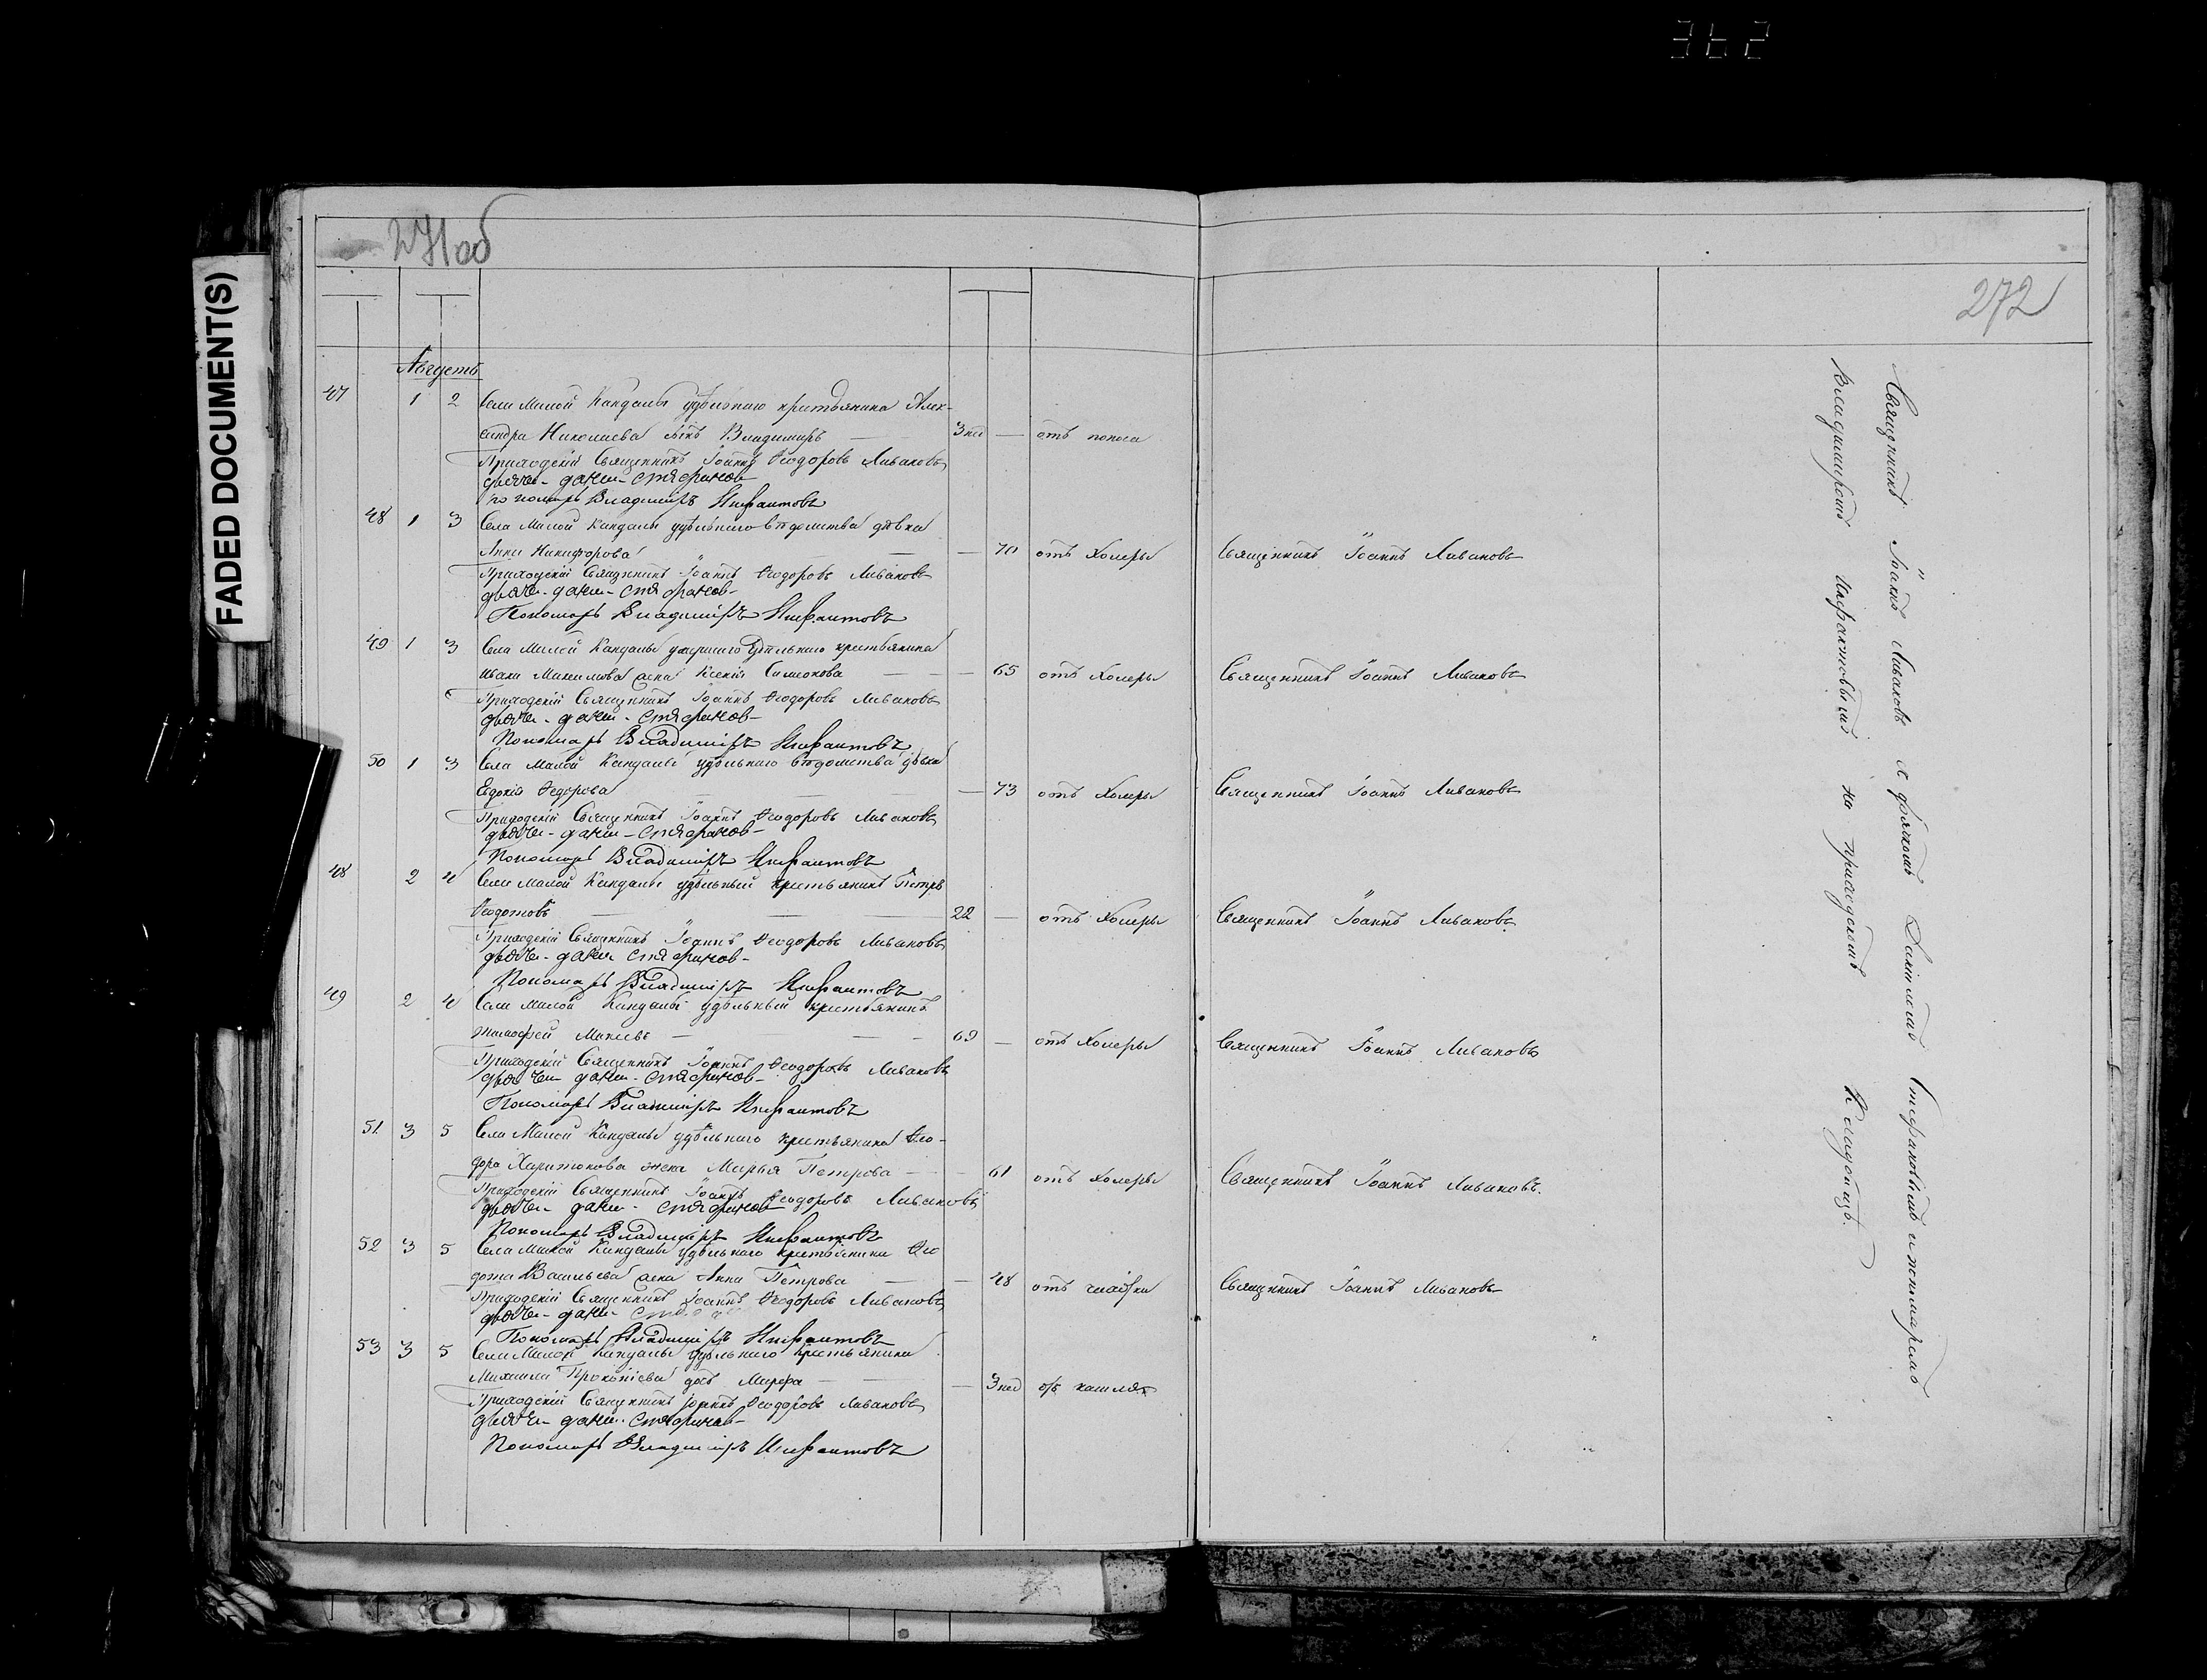 362
FADED DOCUMENT(S)
271об
272
Августъ
47 1 2 Села Малой Кандалы удѣльнаго крестьянина Алек-
сандра Николаева сынъ Владимиръ — 3 нед — отъ поноса
Приходскій Священникъ Іоаннъ Ѳеодоровъ Ливановъ
дьячекъ
пономарь Владимиръ Нифантовъ
48 1 3 Села Малой Кандалы удѣльнаго вѣдомства дѣвка
Анна Никифорова — — — 70 отъ холеры Священникъ Іоаннъ Ливановъ
Приходскій Священникъ Іоаннъ Ѳеодоровъ Ливановъ
дьячекъ
Пономарь Владимиръ Нифантовъ
49 1 3 Села Малой Кандалы умершаго удѣльнаго крестьянина
Ивана жена Ксенія Симонова — — 65 отъ холеры Священникъ Іоаннъ Ливановъ
Приходскій Священникъ Іоаннъ Ѳеодоровъ Ливановъ
дьячекъ
Пономарь Владимиръ Нифантовъ
50 1 3 Села Малой Кандалы удѣльнаго вѣдомства дѣвка
Евдокія Ѳедорова — — — 73 отъ холеры Священникъ Іоаннъ Ливановъ
Приходскій Священникъ Іоаннъ Ѳеодоровъ Ливановъ
дьячекъ
Пономарь Владимиръ Нифантовъ
48 2 4 Села Малой Кандалы удѣльный крестьянинъ Петръ
Ѳедотовъ — — — 22 — отъ холеры Священникъ Іоаннъ Ливановъ
Приходскій Священникъ Іоаннъ Ѳеодоровъ Ливановъ
дьячекъ
Пономарь Владимиръ Нифантовъ
49 2 4 Села Малой Кандалы удѣльный крестьянинъ
Тимофей — — — 69 — отъ холеры Священникъ Іоаннъ Ливановъ
Приходскій Священникъ Іоаннъ Ѳеодоровъ Ливановъ
дьячекъ
Пономарь Владимиръ Нифантовъ
51 3 5 Села Малой Кандалы удѣльнаго крестьянина Ѳео-
дора Харитонова жена Марья Петрова — — 61 отъ холеры Священникъ Іоаннъ Ливановъ.
Приходскій Священникъ Іоаннъ Ѳеодоровъ Ливановъ
дьячекъ
Пономарь Владимиръ Нифантовъ
52 3 5 Села Малой Кандалы удѣльнаго крестьянина Ѳе
дота Васильева жена Анна Петрова — — 48 отъ Священникъ Іоаннъ Ливановъ
Приходскій Священникъ Іоаннъ Ѳеодоровъ Ливановъ
дьячекъ
Пономарь Владимиръ Нифантовъ
53 3 5 Села Малой Кандалы удѣльнаго крестьянина
Михаила Прокопіева дочь Марфа — — — 3 нед отъ кашля
Приходскій Священникъ Іоаннъ Ѳеодоровъ Ливановъ
дьячекъ
Пономарь Владимиръ Нифантовъ
Священникъ Іоаннъ Ливановъ съ дьячкомъ Стефановымъ и пономаремъ
Владимиромъ Нифантовымъ на приходскомъ Кладбищѣ.